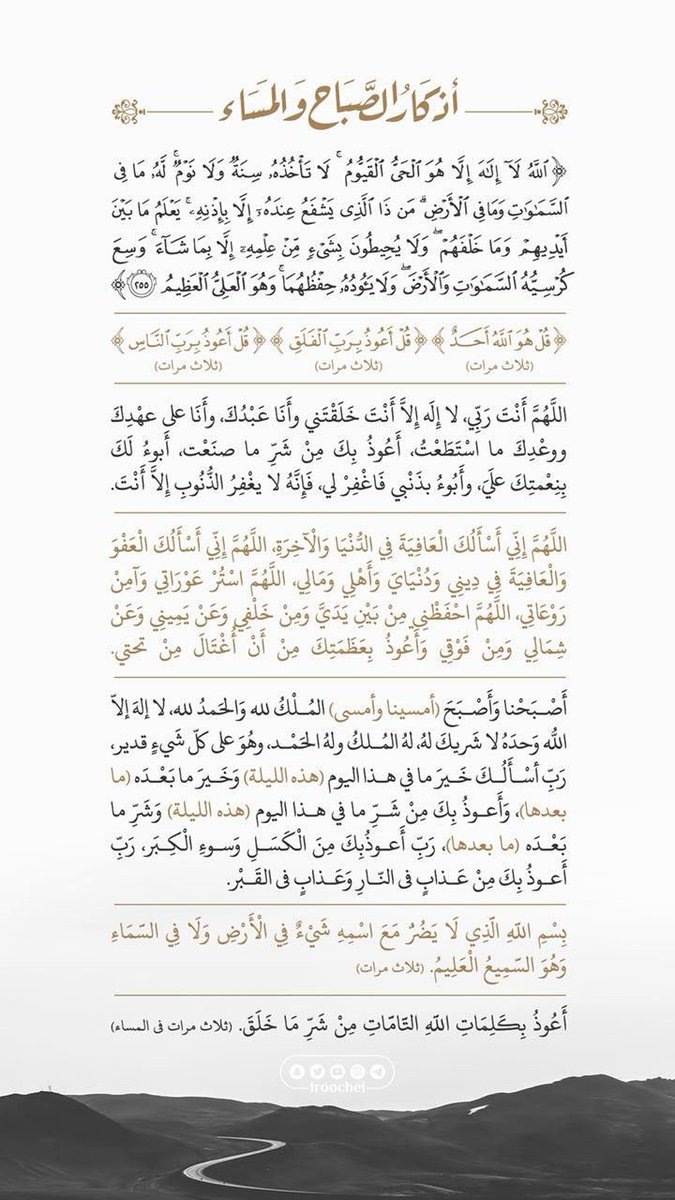 أذكار الصَّبَاح وَالمَسَاء
﴿ ٱللَّهُ لَآ إِلَـٰهَ إِلَّا هُوَ ٱلۡحَىُّ ٱلۡقَيُّومُ ۚ لَا تَأۡخُذُهُۥ سِنَةٌ وَلَا نَوۡمٌ ۚ لَّهُۥ مَا فِى
ٱلسَّمَـٰوَٰتِ وَمَا فِى ٱلۡأَرۡضِ ۗ مَن ذَا ٱلَّذِى يَشۡفَعُ عِندَهُۥٓ إِلَّا بِإِذۡنِهِۦ ۚ يَعۡلَمُ مَا بَيۡنَ
أَيۡدِيهِمۡ وَمَا خَلۡفَهُمۡ ۖ وَلَا يُحِيطُونَ بِشَىۡءٍ مِّنۡ عِلۡمِهِۦٓ إِلَّا بِمَا شَآءَ ۚ وَسِعَ
كُرۡسِيُّهُ ٱلسَّمَـٰوَٰتِ وَٱلۡأَرۡضَ ۖ وَلَا يَـُٔودُهُۥ حِفۡظُهُمَا ۚ وَهُوَ ٱلۡعَلِىُّ ٱلۡعَظِيمُ ٢٥٥ ﴾
﴿ قُلۡ هُوَ ٱللَّهُ أَحَدٌ ﴾ ﴿ قُلۡ أَعُوذُ بِرَبِّ ٱلۡفَلَقِ ﴾ ﴿ قُلۡ أَعُوذُ بِرَبِّ ٱلنَّاسِ ﴾
(ثلاث مرات) (ثلاث مرات) (ثلاث مرات)
اللَّهُمَّ أَنْتَ رَبِّي، لا إِلَه إِلاَّ أَنْتَ خَلَقْتَني وأَنَا عَبْدُكَ، وأَنَا على عهْدِكَ
ووعْدِكَ ما اسْتَطَعْتُ، أَعُوذُ بِكَ مِنْ شَرِّ ما صنَعْت، أَبوءُ لَكَ
بِنِعْمتِكَ علَيَّ، وأَبُوءُ بذَنْبي فَاغْفِرْ لي، فَإِنَّهُ لا يغْفِرُ الذُّنُوبِ إِلاَّ أَنْتَ.
اللَّهُمَّ إِنِّي أَسْأَلُكَ الْعَافِيَةَ فِي الدُّنْيَا وَالْآخِرَةِ، اللَّهُمَّ إِنِّي أَسْأَلُكَ الْعَفْوَ
وَالْعَافِيَةَ فِي دِينِي وَدُنْيَايَ وَأَهْلِي وَمَالِي، اللَّهُمَّ اسْتُرْ عَوْرَاتِي وَآمِنْ
رَوْعَاتِي، اللَّهُمَّ احْفَظْنِي مِنْ بَيْنِ يَدَيَّ وَمِنْ خَلْفِي وَعَنْ يَمِينِي وَعَنْ
شِمَالِي وَمِنْ فَوْقِي وَأَعُوذُ بِعَظَمَتِكَ مِنْ أَنْ أُغْتَالَ مِنْ تحتي.
أَصْبَحْنا وَأَصْبَحَ (أمسينا وأمسى) المُلْكُ لله وَالحَمدُ لله، لا إلهَ إلاّ
اللّه وَحدَهُ لا شَريكَ لهُ، لهُ المُلكُ ولهُ الحَمْد، وهُوَ على كلّ شَيءٍ قدير،
رَبِّ أسْأَلُكَ خَيرَ ما في هذا اليوم (هذه الليلة) وَخَيرَ ما بَعْدَه (ما
بعدها)، وَأَعوذُ بِكَ مِنْ شَرِّ ما في هذا اليوم (هذه الليلة) وَشَرِّ ما
بَعْدَه (ما بعدها)، رَبِّ أَعوذُبِكَ مِنَ الْكَسَلِ وَسوءِ الْكِبَر، رَبِّ
أَعوذُ بِكَ مِنْ عَذابٍ في النّارِ وَعَذابٍ في القَبْر.
بِسْمِ اللّهِ الّذِي لَا يَضُرُّ مَعَ اسْمِهِ شَيْءٌ فِي الْأَرْضِ وَلَا فِي السّمَاءِ
وَهُوَ السّمِيعُ الْعَلِيمُ. (ثلاث مرات)
أَعُوذُ بِكَلِمَاتِ اللّهِ التّامّاتِ مِنْ شَرِّ مَا خَلَقَ. (ثلاث مرات فى المساء)
iroochel